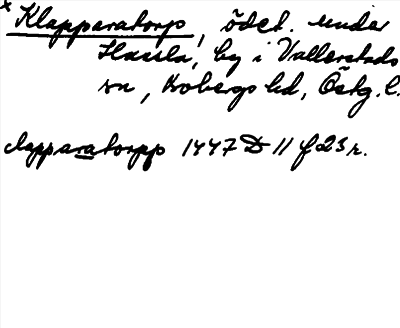 * Klapparatorp, ödet. under
Hassla, by i Vallerstads
sn, Kobergs hd, Östg. l.
clapparatorpp 1447 D 11 f 23 r.